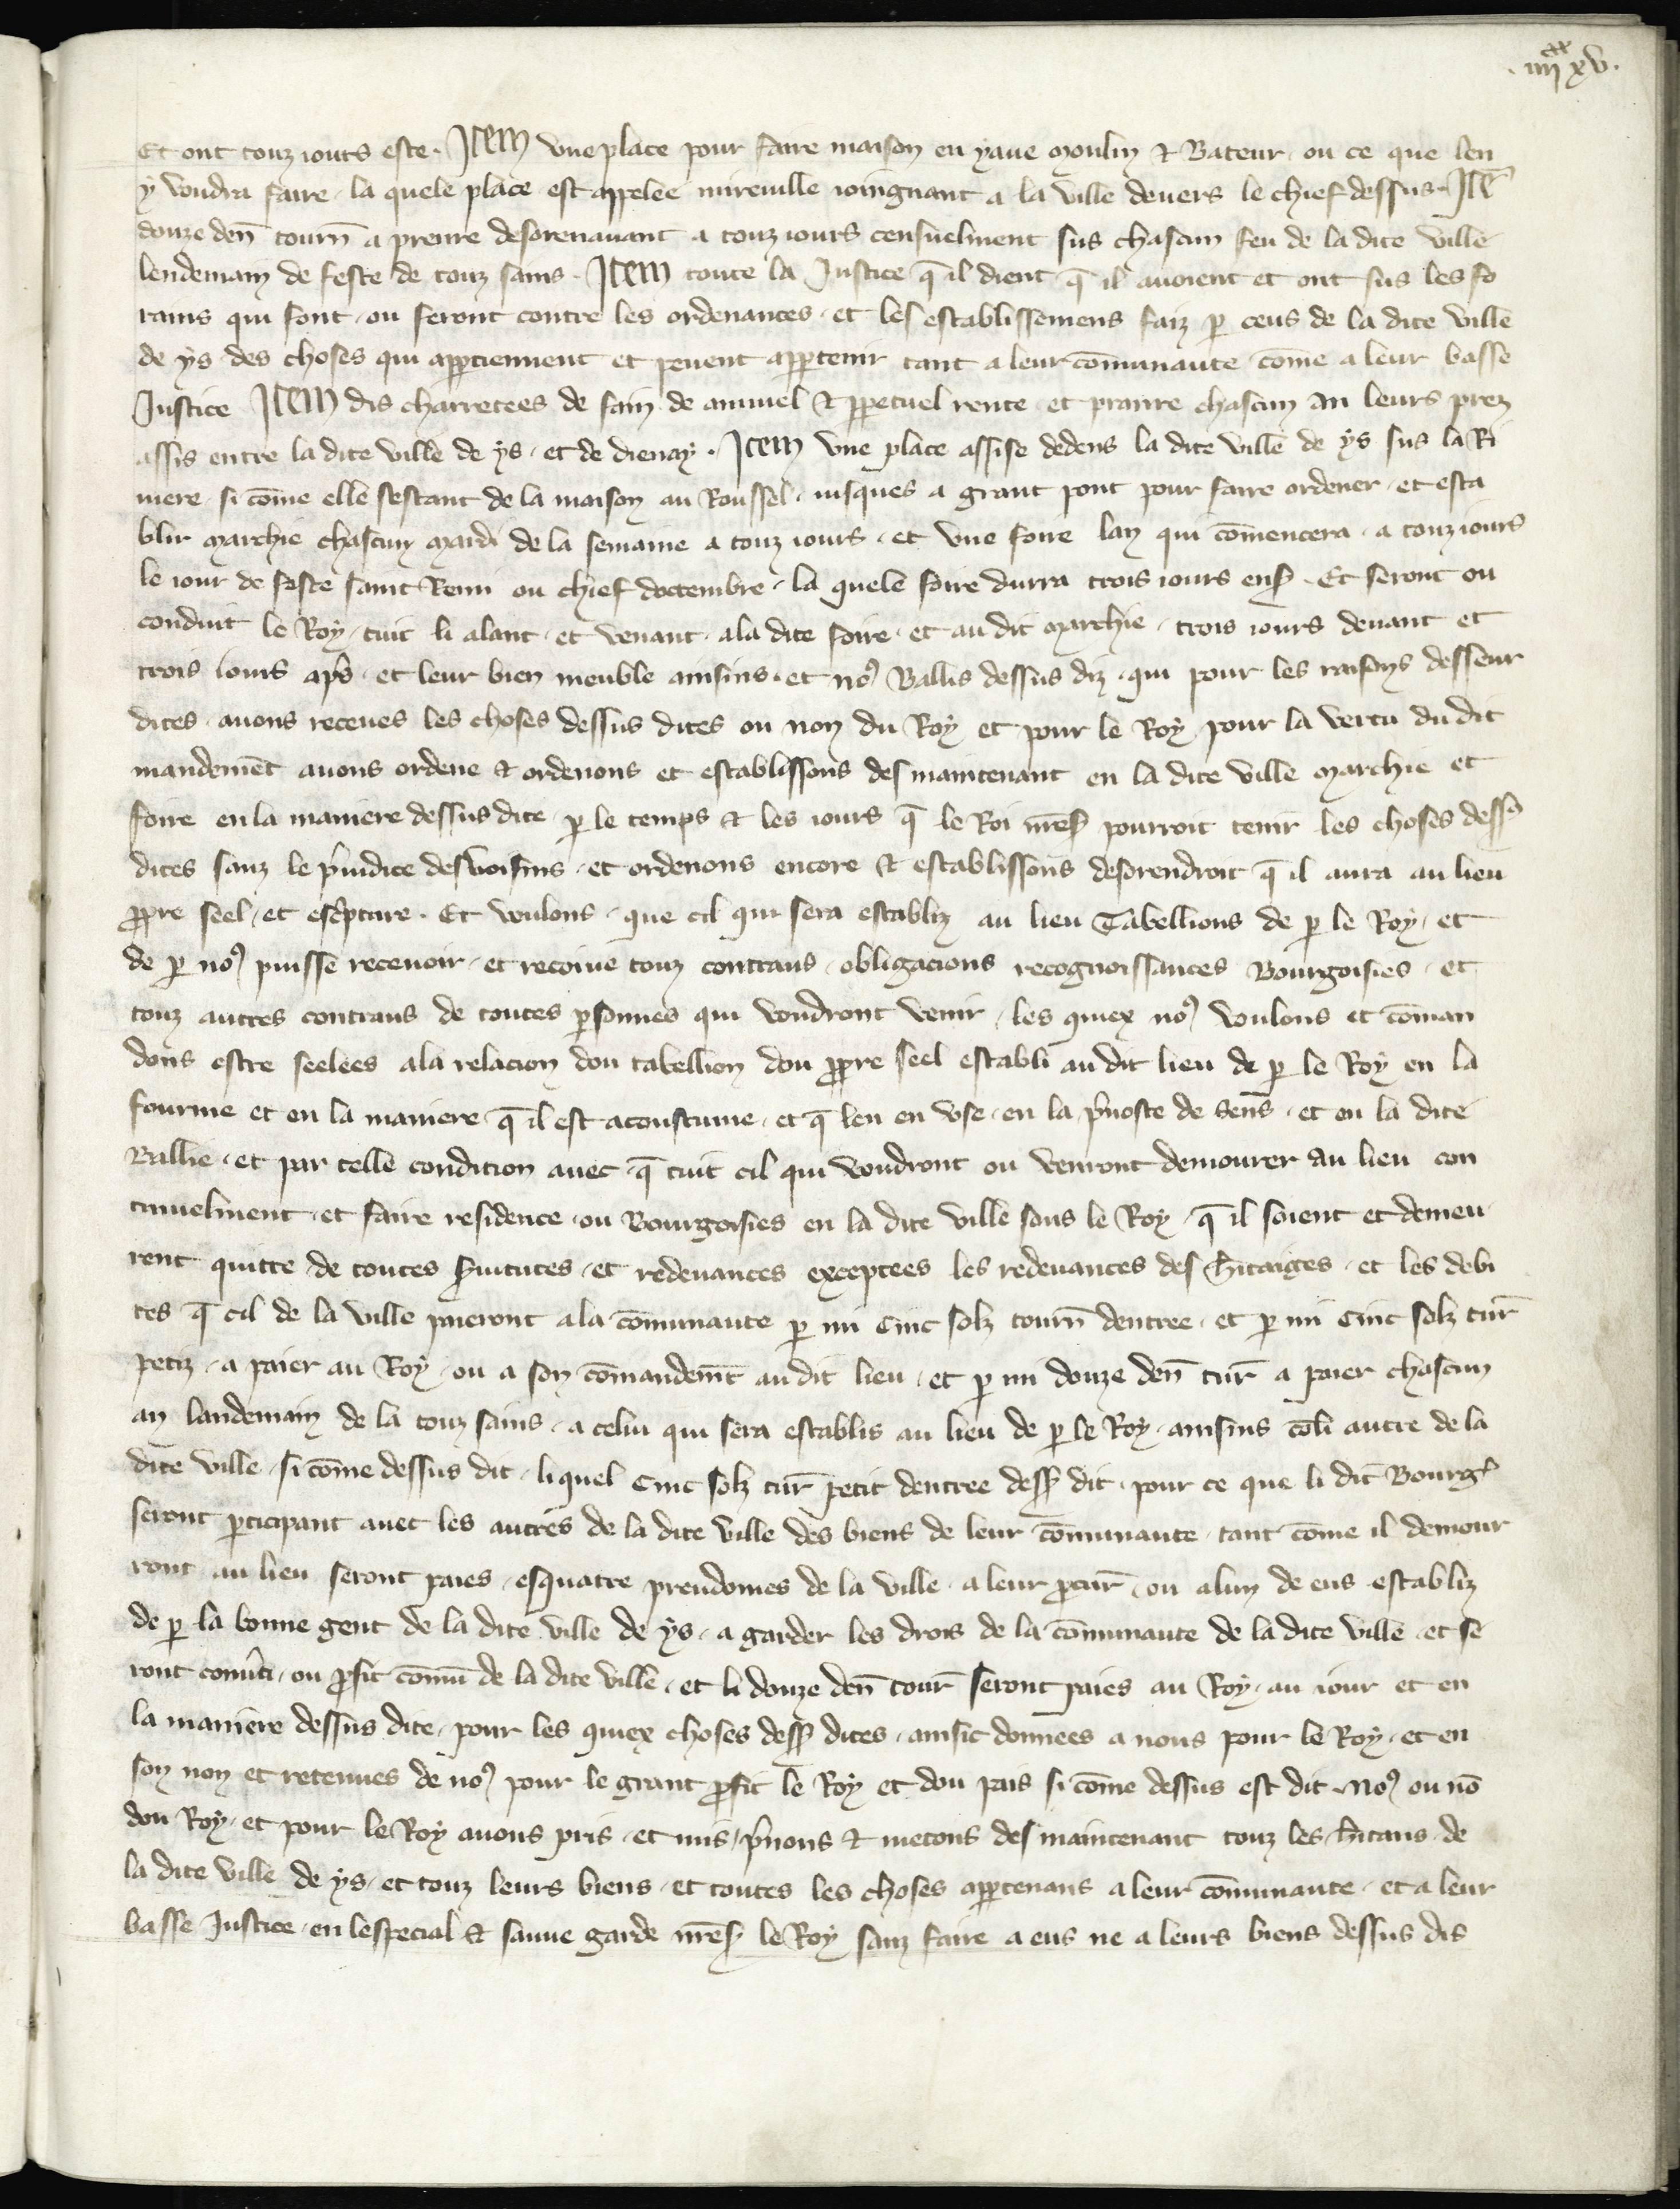 .iiijxx xv.
Et ont touz iours este. Item vne place pour faire maison en yaue moulin & Bateur. ou ce que len
y voudra faire. la quele place est appelee mireuille ioingnant a la ville deuers le chief dessus. Itē
douze den̄ tourn̄ a prenre desorenauant a touz iours censuelment sus chascun feu de la dite ville
lendemain de feste de touz sains. Item toute la Iustice q̄ il dient q̄ il auoient et ont sus les fo
rains qui font. ou feront contre les ordenances. et les establissemens faiz ꝑ ceus de la dite ville
de ys des choses qui apꝑtiennent et peuent apꝑtenir tant a leur cōmunaute cōme a leur basse
Iustice Item dis charretees de fain de annuel & ꝑpetuel rente. et pranre chascun an leurs prez
assis entre la dite ville de ys. et de dienay. Item vne place assise dedens la dite ville de ys sus la Ri
uiere. si cōme elle sestant de la maison au Roussel. iusques a grant pont pour faire ordener. et esta
blir marchie chascun mardi de la semaine a touz iours. et vne foire lan qui cōmencera. a touz iours
le iour de feste saint Remi ou chief doctembre. la quele foire durra trois iours ens̄. Et seront ou
conduit le Roy. tuit li alant. et venant. a la dite foire. et au dit marchie. trois iours deuant et
trois iours ap̄s. et leur bien meuble ainsins. et noꝰ Ballis dessus diz. qui pour les raisons desseur
dites. auons receues les choses dessus dites ou non du Roy et pour le Roy pour la vertu du dit
mandemēt auons ordene & ordenons et establissons des maintenant en la dite ville marchie et
foire en la maniere dessus dite. ꝑ le temps & les iours q̄ le Roi nr̄es pourroit tenir les choses dessꝰ
dites sanz le p̄iudice des voisins. et ordenons encore & establissons desorendroit q̄ il aura au lieu
ꝓpre seel. et esc̄pture. Et voulons. que cil qui sera establiz au lieu Tabellions de ꝑ le Roy. et
de ꝑ noꝰ puisse receuoir. et recoiue touz contraus. obligacions recognoissances Bourgoisies. et
touz autres contraus de toutes ꝑsonnes qui voudront venir. les quiex noꝰ voulons et cōman
dons estre seelees a la relacion dou tabellion dou ꝓpre seel establi au dit lieu de ꝑ le Roy en la
fourme et en la maniere q̄ il est acoustume. et q̄ len en vse. en la p̄uoste de sens̄. et en la dite
Ballie. et par telle condition auec. q̄ tuit cil qui voudront ou venront demourer au lieu con
tinuelment. et faire residence. ou Bourgoisies en la dite ville sous le Roy. q̄ il soient et demeu
rent quitte de toutes s̄uitutes. et redeuances exceptees les redeuances des h̄itaiges. et les debi
tes q̄ cil de la ville paieront a la cōmunaute ꝑ mi Cinc solz tourn̄ dentree. et ꝑ mi Cinc solz tur̄
petiz. a paier au Roy. ou a son cōmandemēt au dit lieu. et ꝑ mi douze den̄ tur̄ a paier chascun
an landemain de la touz sains. a celui qui sera establis au lieu de ꝑ le Roy. ainsins cō li autre de la
dite ville. si cōme dessus dit. li quel Cinc solz tur̄ petit dentree dess̄ dit. pour ce que li dit Bourḡ
seront ꝑticipant auec les autres de la dite ville des biens de leur cōmunaute. tant cōme il demour
ront au lieu seront paies. es quatre preudomes de la ville. a leur ꝓcur̄. ou a lun de eus establiz
de ꝑ la bonne gent de la dite ville de ys. a garder les drois de la cōmunaute de la dite ville. et se
ront conuerti. ou ꝓfit cōmū de la dite ville. et li douze den̄ tour̄ seront paies au Roy. au iour et en
la maniere dessus dite. pour les quiex choses dess̄ dites. ainsic donnees a nous pour le Roy. et en
son non et retenues de noꝰ pour le grant ꝓfit le Roy et dou pais si cōme dessus est dit. Noꝰ ou nō
dou Roy. et pour le Roy auons pris. et mis. p̄nons & metons des maintenant touz les h̄itans. de
la dite ville de ys. et touz leurs biens. et toutes les choses apꝑtenans a leur cōmunaute. et a leur
basse Iustice. en lespecial & sauue garde nr̄es le Roy sanz faire a eus ne a leurs biens dessus dis